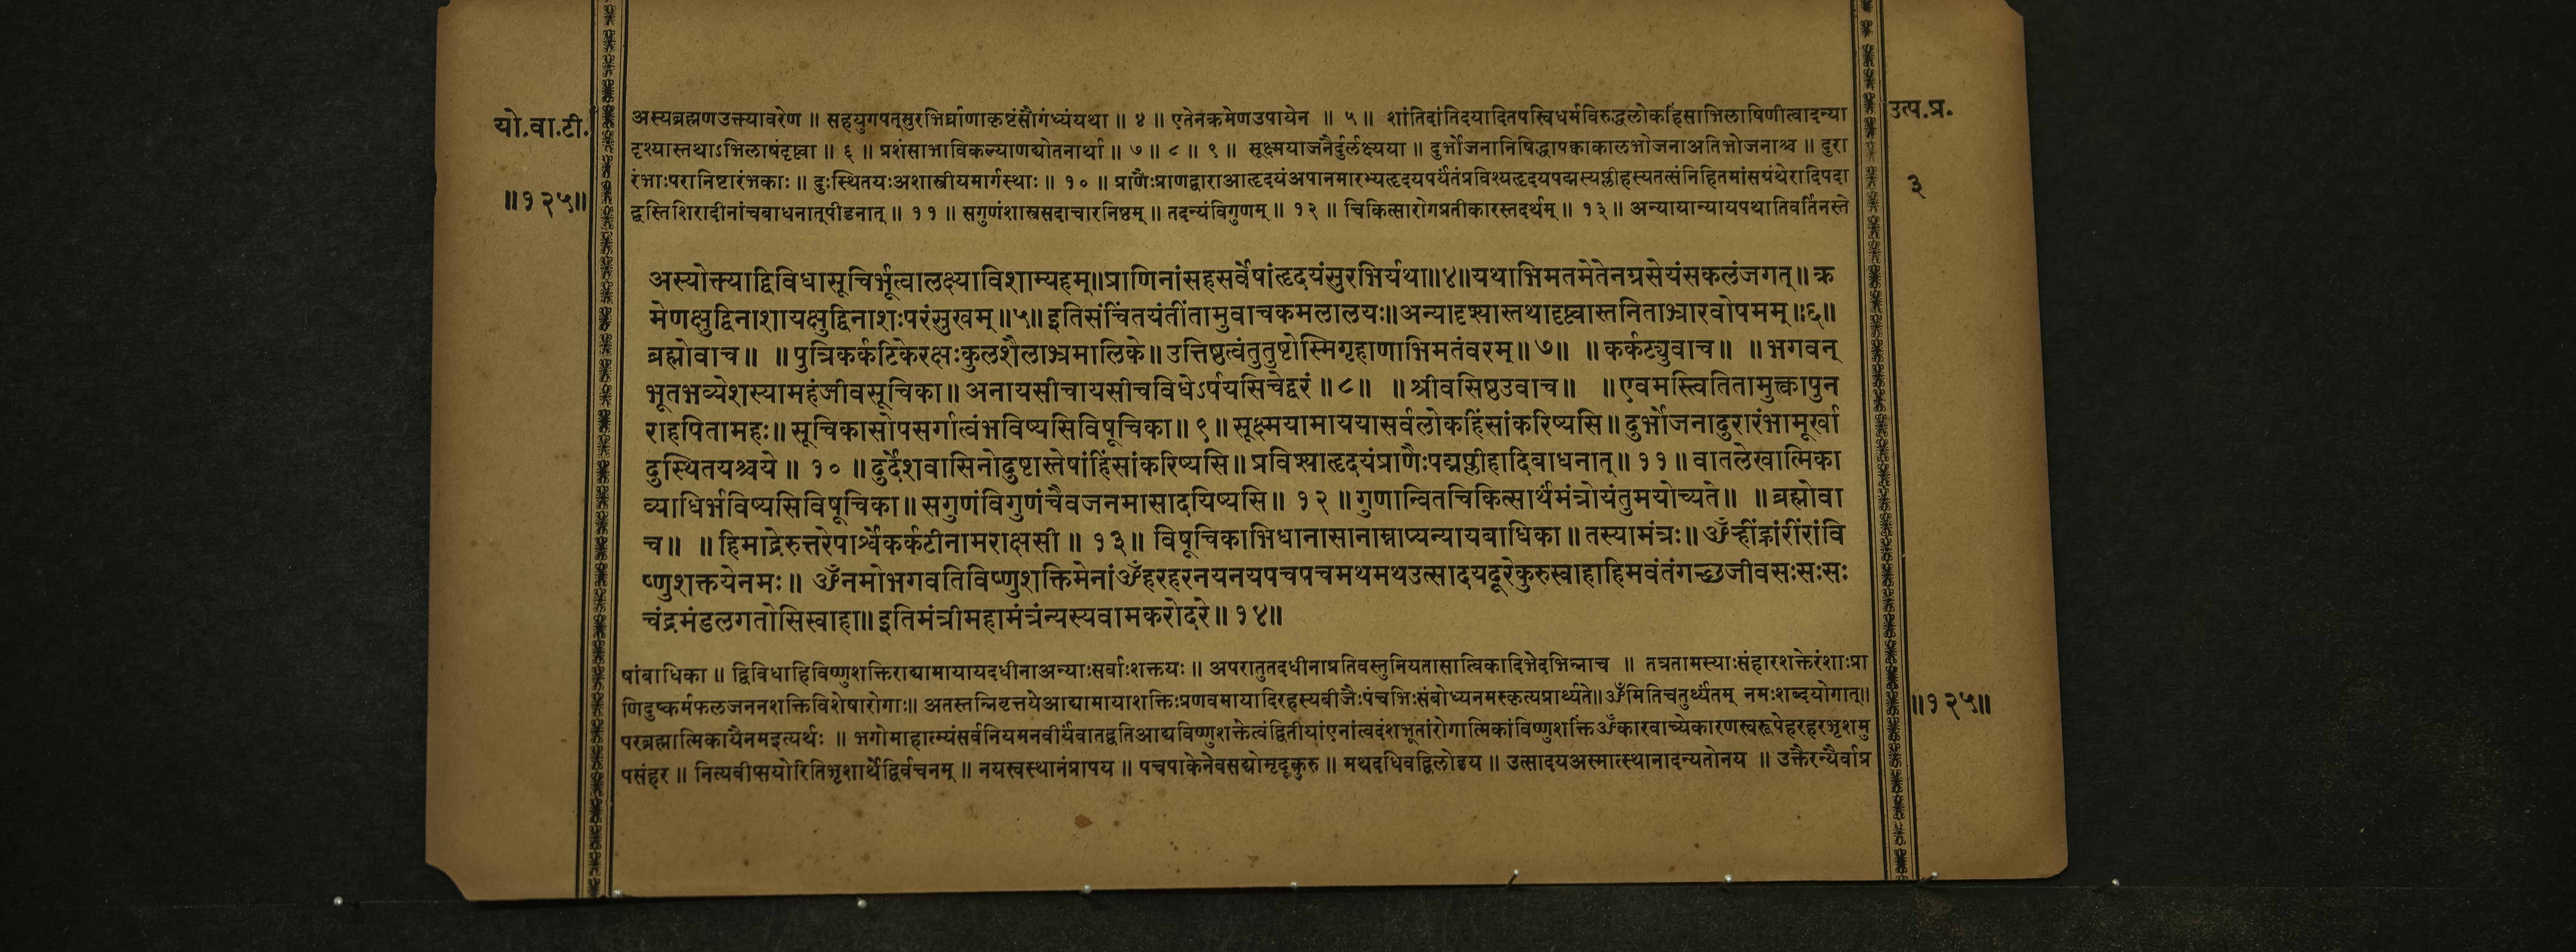 यो.वा.टी.
॥१२५॥
उत्प.प्र.
३
अस्यब्रह्मणउक्त्यावरेण ॥ सहयुगपत्सुरभिर्घ्राणाकृष्टंसौगंध्यंयथा ॥ ४ ॥ एतेनक्रमेणउपायेन ॥ ५ ॥ शांतिदांतिदयादितपस्विधर्मविरुद्धलोकहिंसाभिलाषिणीत्वादन्या
दृश्यास्तथाऽभिलाषंदृष्ट्वा ॥ ६ ॥ प्रशंसाभाविकल्याणद्योतनार्था ॥ ७ ॥ ८ ॥ ९ ॥ सूक्ष्मयाजनैर्दुर्लक्ष्यया ॥ दुर्भोजनानिषिद्धापक्वाकालभोजनाअतिभोजनाश्च ॥ दुरा
रंभाःपरानिष्टारंभकाः ॥ दुःस्थितयःअशास्त्रीयमार्गस्थाः ॥ १० ॥ प्राणैःप्राणद्वाराआहृदयंअपानमारभ्यहृदयपर्यंतंप्रविश्यहृदयपद्मस्यप्लीहस्यतत्संनिहितमांसयंथेरादिपदा
द्वस्तिशिरादीनांचबाधनात्पीडनात् ॥ ११ ॥ सगुणंशास्त्रसदाचारनिष्ठम् ॥ तदन्यंविगुणम् ॥ १२ ॥ चिकित्सारोगप्रतीकारस्तदर्थम् ॥ १३ ॥ अन्यायान्यायपथातिवर्तिनस्ते
अस्योक्त्याद्विविधासूचिर्भूत्वालक्ष्याविशाम्यहम्॥प्राणिनांसहसर्वेषांहृदयंसुरभिर्यथा॥४॥यथाभिमतमेतेनग्रसेयंसकलंजगत्॥ क्र
मेणक्षुद्विनाशायक्षुद्विनाशःपरंसुखम्॥५॥इतिसंचिंतयंतींतामुवाचकमलालयः॥अन्यादृश्यास्तथादृष्ट्वास्तनिताभ्रारवोपमम्॥६॥
ब्रह्मोवाच॥ ॥पुत्रिकर्कटिकेरक्षःकुलशैलाभ्रमालिके॥उत्तिष्ठत्वंतुतुष्टोस्मिगृहाणाभिमतंवरम्॥७॥ ॥कर्कट्युवाच॥ ॥भगवन्
भूतभव्येशस्यामहंजीवसूचिका॥अनायसीचायसीचविधेऽर्पयसिचेद्वरं॥८॥ ॥श्रीवसिष्ठउवाच॥ ॥एवमस्त्वितितामुक्त्वापुन
राहपितामहः॥सूचिकासोपसर्गात्वंभविष्यसिविषूचिका॥९॥सूक्ष्मयामाययासर्वलोकहिंसांकरिष्यसि॥दुर्भोजनादुरारंभामूर्खा
दुस्थितयश्चये॥ १० ॥दुर्देशवासिनोदुष्टास्तेषांहिंसांकरिष्यसि॥प्रविश्याहृदयंप्राणैःपद्मप्लीहादिबाधनात्॥११॥वातलेखात्मिका
व्याधिर्भविष्यसिविषूचिका॥सगुणंविगुणंचैवजनमासादयिष्यसि॥ १२ ॥गुणान्वितचिकित्सार्थंमंत्रोयंतुमयोच्यते॥ ॥ब्रह्मोवा
च॥ ॥हिमाद्रेरुत्तरेपार्श्वेकर्कटीनामराक्षसी॥ १३॥ विषूचिकाभिधानासानाम्नाप्यन्यायबाधिका॥तस्यामंत्रः॥ॐह्रींह्रांरींरांवि
ष्णुशक्तयेनमः॥ ॐनमोभगवतिविष्णुशक्तिमेनांॐहरहरनयनयपचपचमथमथउत्सादयदूरेकुरुस्वाहाहिमवंतंगच्छजीवसःसःसः
चंद्रमंडलगतोसिस्वाहा॥इतिमंत्रीमहामंत्रंन्यस्यवामकरोदरे॥१४॥
षांबाधिका ॥ द्विविधाहिविष्णुशक्तिराद्यामायायदधीनाअन्याःसर्वाःशक्तयः ॥ अपरातुतदधीनाप्रतिवस्तुनियतासात्विकादिभेदभिन्नाच ॥ तत्रतामस्याःसंहारशक्तेरंशाःप्रा
णिदुष्कर्मफलजननशक्तिविशेषारोगाः॥ अतस्तन्निवृत्तयेआद्यामायाशक्तिःप्रणवमायादिरहस्यबीजैःपंचभिःसंबोध्यनमस्कृत्यप्रार्थ्यते॥ॐमितिचतुर्थ्यंतम् नमःशब्दयोगात्॥
परब्रह्मात्मिकायैनमइत्यर्थः ॥ भगोमाहात्म्यंसर्वनियमनवीर्यंवातद्वतिआद्यविष्णुशक्तेत्वंद्वितीयांएनांत्वदंशभूतांरोगात्मिकांविष्णुशक्तिंॐकारवाच्येकारणस्वरूपेहरहरभृशमु
पसंहर ॥ नित्यवीप्सयोरितिभृशार्थेद्विर्वचनम् ॥ नयस्वस्थानंप्रापय ॥ पचपाकेनेवसद्योमृदूकुरु ॥ मथदधिवद्विलोडय ॥ उत्सादयअस्मात्स्थानादन्यतोनय ॥ उक्तैरन्यैर्वाप्र
॥१२५॥